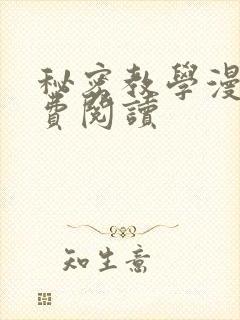 秘密教學漫
費閱讀
知生意